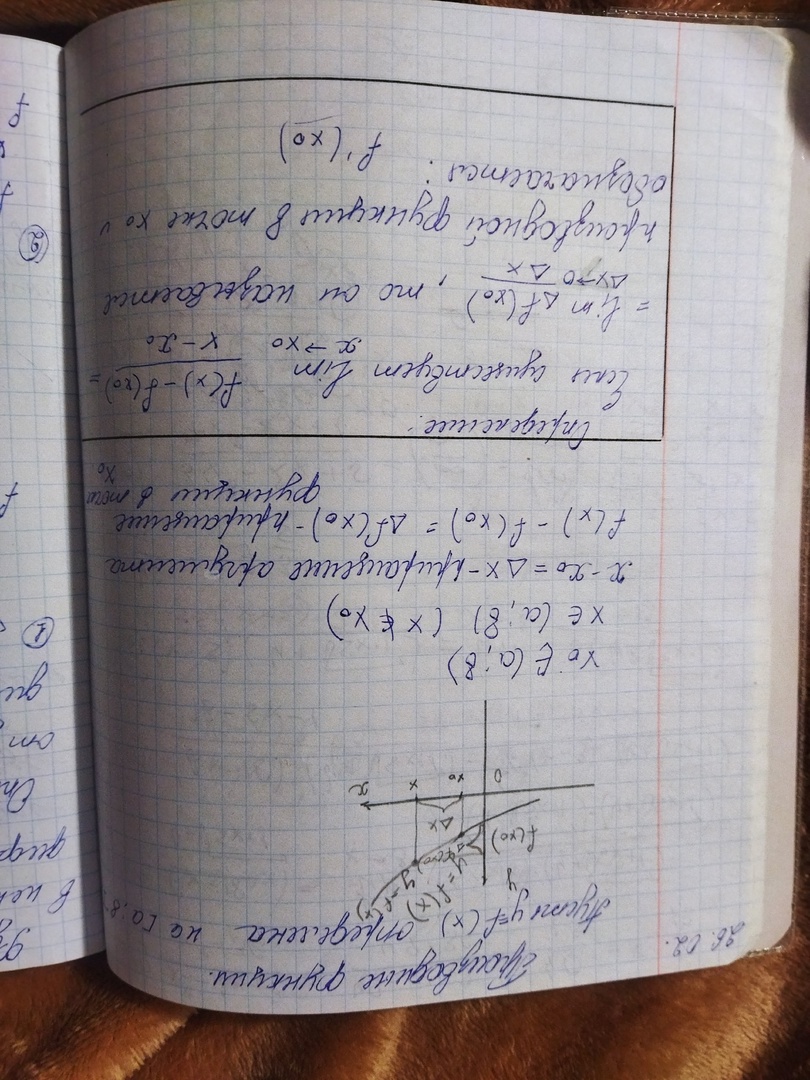 26.02.
Производные функции.
Пусть y=f(x) определена на [a;в]
y
y=f(x)
y=f(x)
f(x₀)
Δx
0 x₀ x x
x₀ ∈ (a;в)
x ∈ (a;в) (x ∉ x₀)
x - x₀ = Δx - приращение аргумента
f(x) - f(x₀) = Δf(x₀) - приращение
функции в точке
x₀
Определение:
Если существует lim x→x₀ (f(x) - f(x₀))/(x - x₀) =
= lim Δx→0 Δf(x₀)/Δx, то он называется
производной функции в точке x₀ и
обозначается:
f'(x₀)
в
диф
Оп
от
ди
1
f
2
f
f